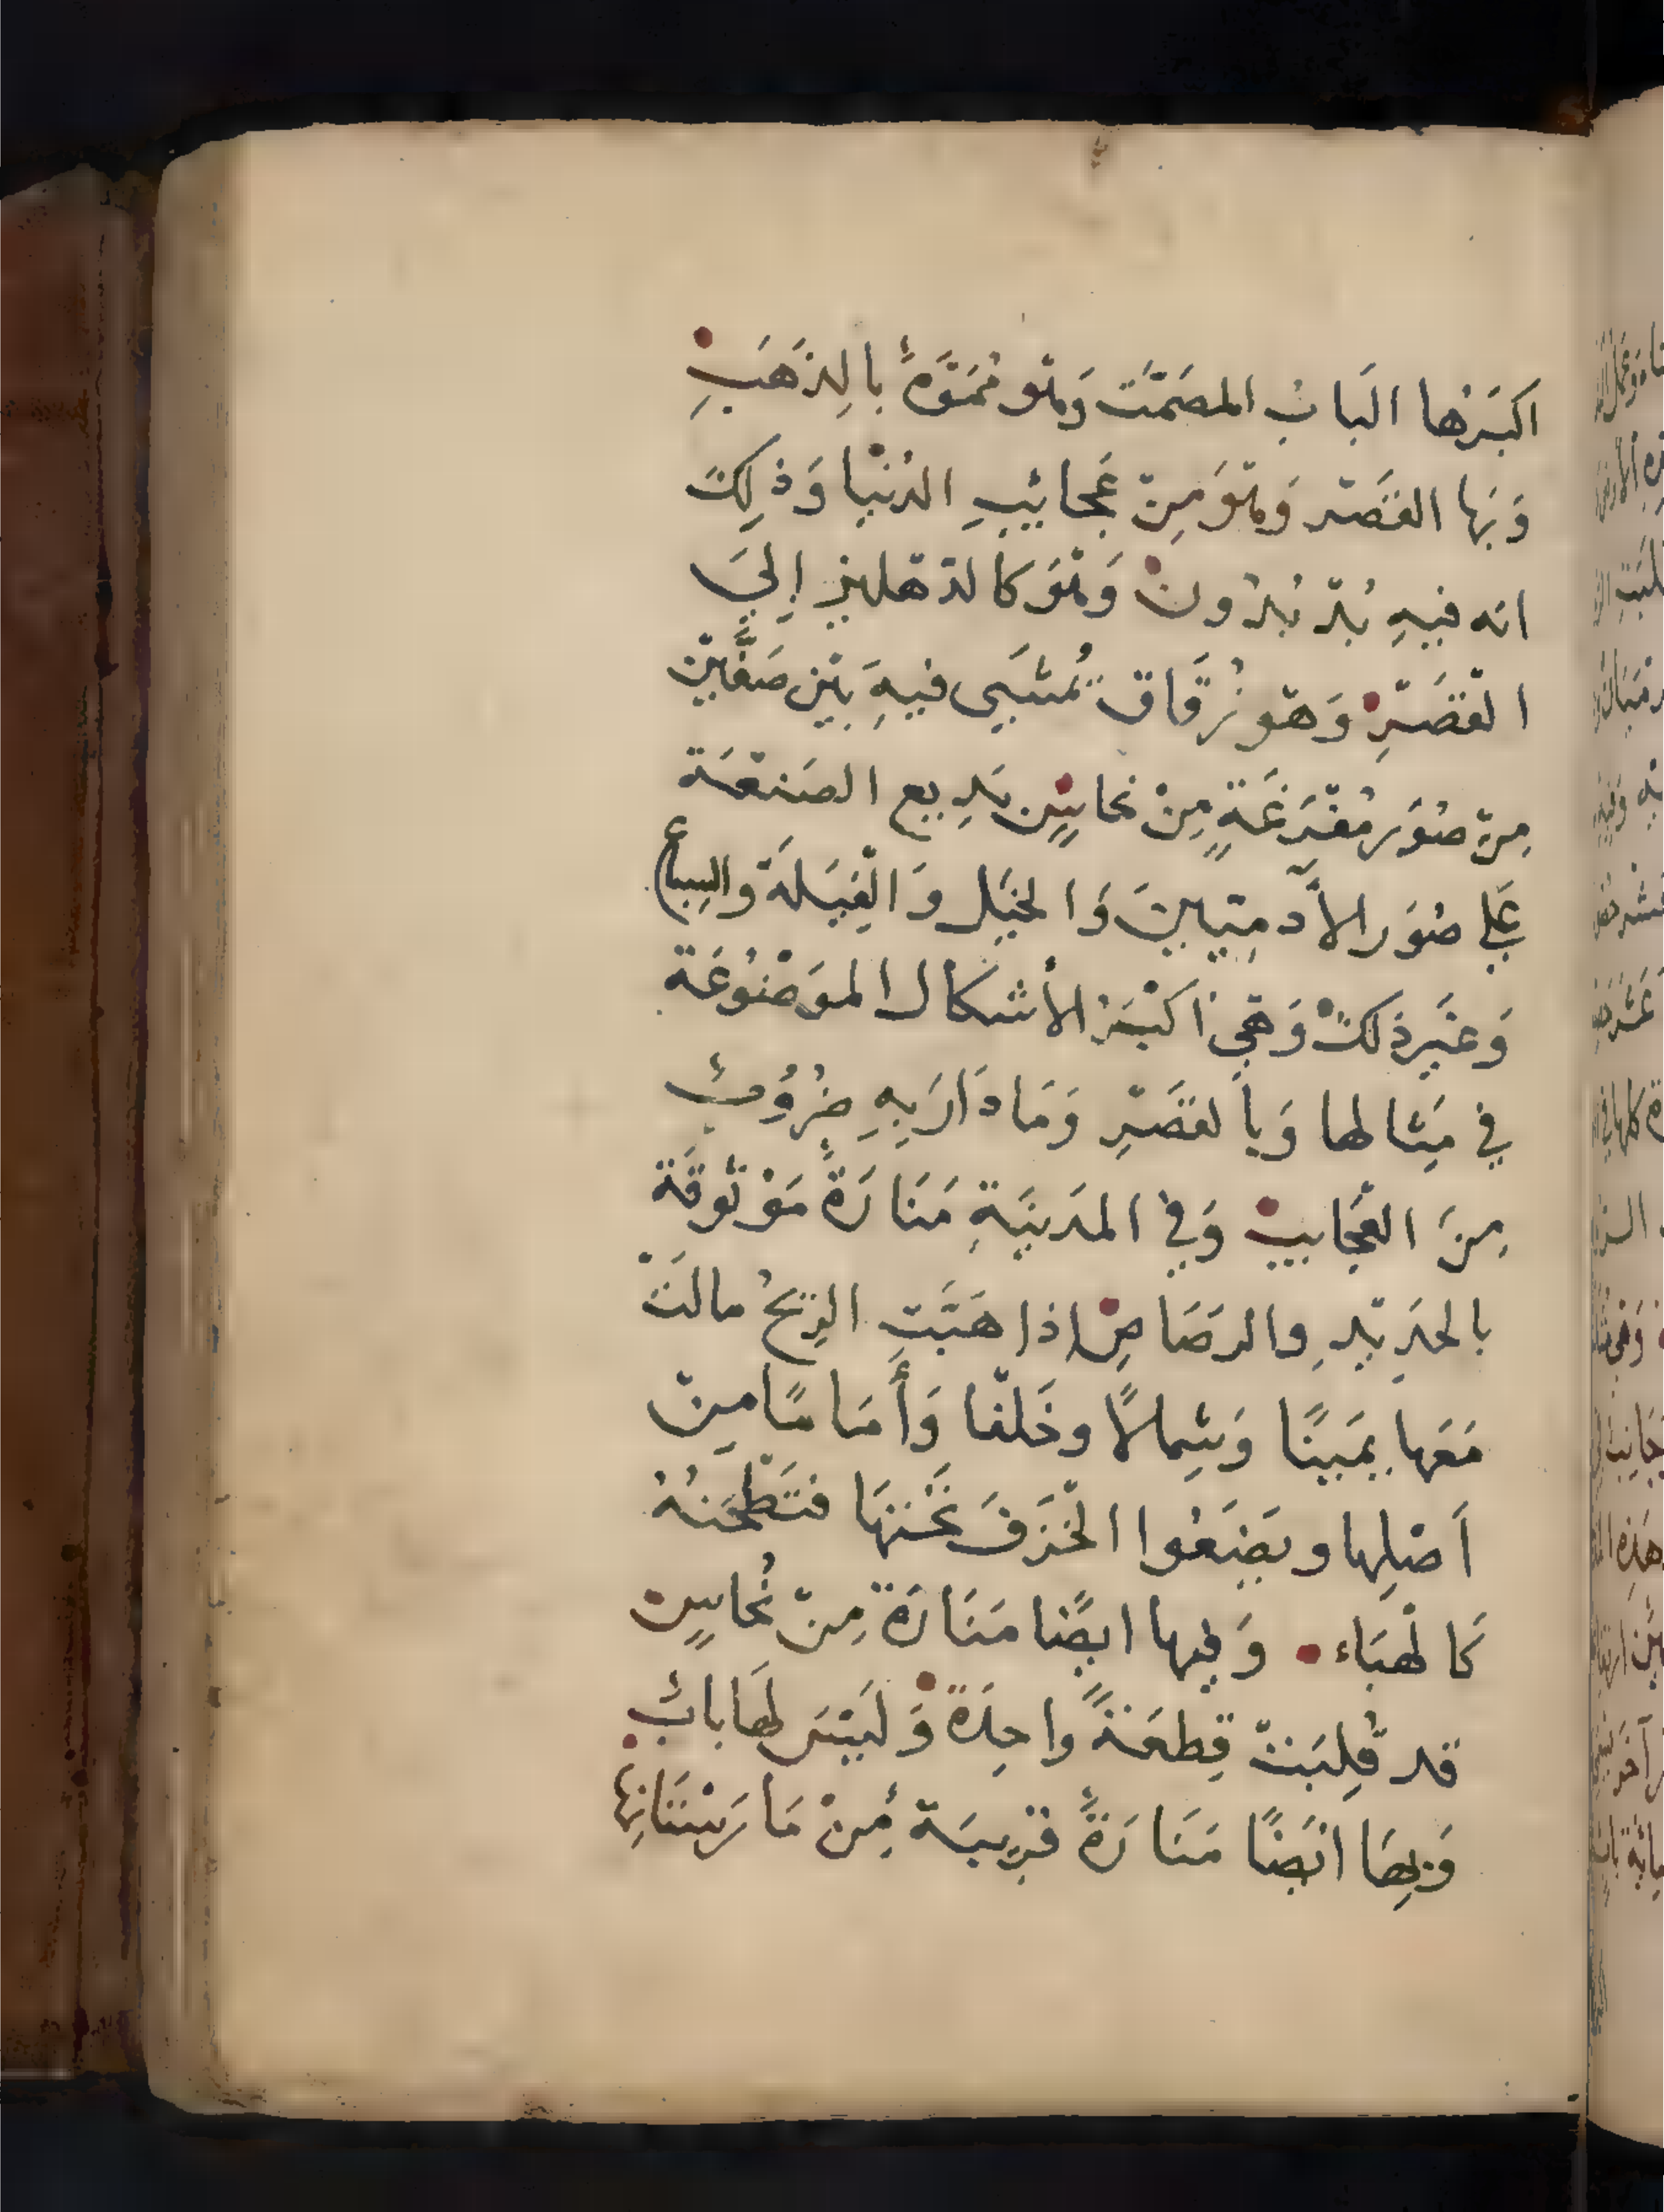 اكبَرُها البَابُ المصَمَّت وَهْو مُمَوَّهٌ بالِذَهَبِ
وَبَها القَصْر وَهْوَ مِنْ عَجَائِبِ الدُنْيا وَذ لِكَ
انه فيهِ بُدّ بُدُونْ وَهْوَ كالدْهليزِ إِليَ
القَصْرِ وَهْو زُقَاق يُمْشَي فيهِ بَيْن صَفَّيْن
مِنْ صُوَر مُفْرَغَةٍ مِنْ نحاسٍ بَدِيع الصَنْعَة
عَلي صُوَر الآدمِيّينَ وَالخَيْل وَالْفِيَلَةَ والسِباع
وَغيَر ذلكَ وَهْيَ اَكْبَرُ الأشكال الموَضْوُعَة
في مِثالها وَبِالقَصْرِ وَمَا دَارَ بِهِ ضُرُوبٌ
مِنَ العَجَايبِ وَفِي المدَينَةِ مَنَارَةٌ مَوْثوقَة
بالحَدِيْدِ والرصَاصِ اذا هَبَّتِ الرِيْحُ مالَتْ
مَعَها يمَينًا وَشِمالاً وخَلْفًا وَأَمَامًا مِنْ
اَصْلِها ويَضَعُوا الْخَزَفَ تَحْتَهَا فتَطْحَنُهُ
كَالْهَبَاء وَفيها ايضًا مَنَارَة مِنْ نُحَاسٍ
قد قُلِبَتْ قِطعَةً واحِدَةً وَلَيْسَ لهَا بابٌ
وَبِهَا اَيْضًا مَنَارَةٌ قَرِيبَة مِنْ مَارَسْتَانِها